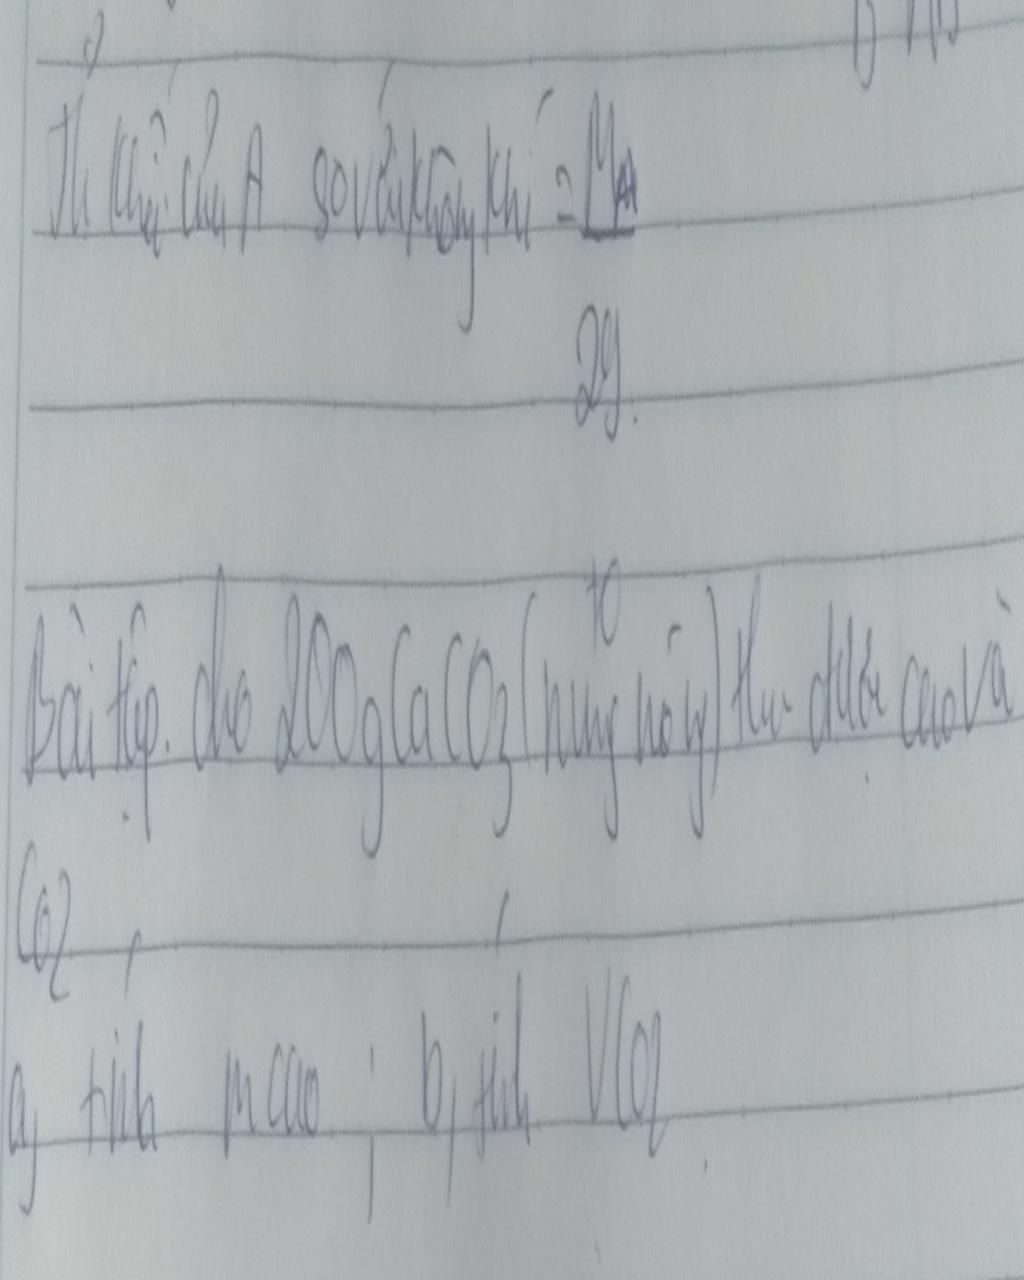 Tỉ khối của A so với không khí = MA
29.
t0
Bài tập. cho 200g CaCO3 (nung nóng) thu được cao và
CO2
a, tính m cao ; b, tính VCO2